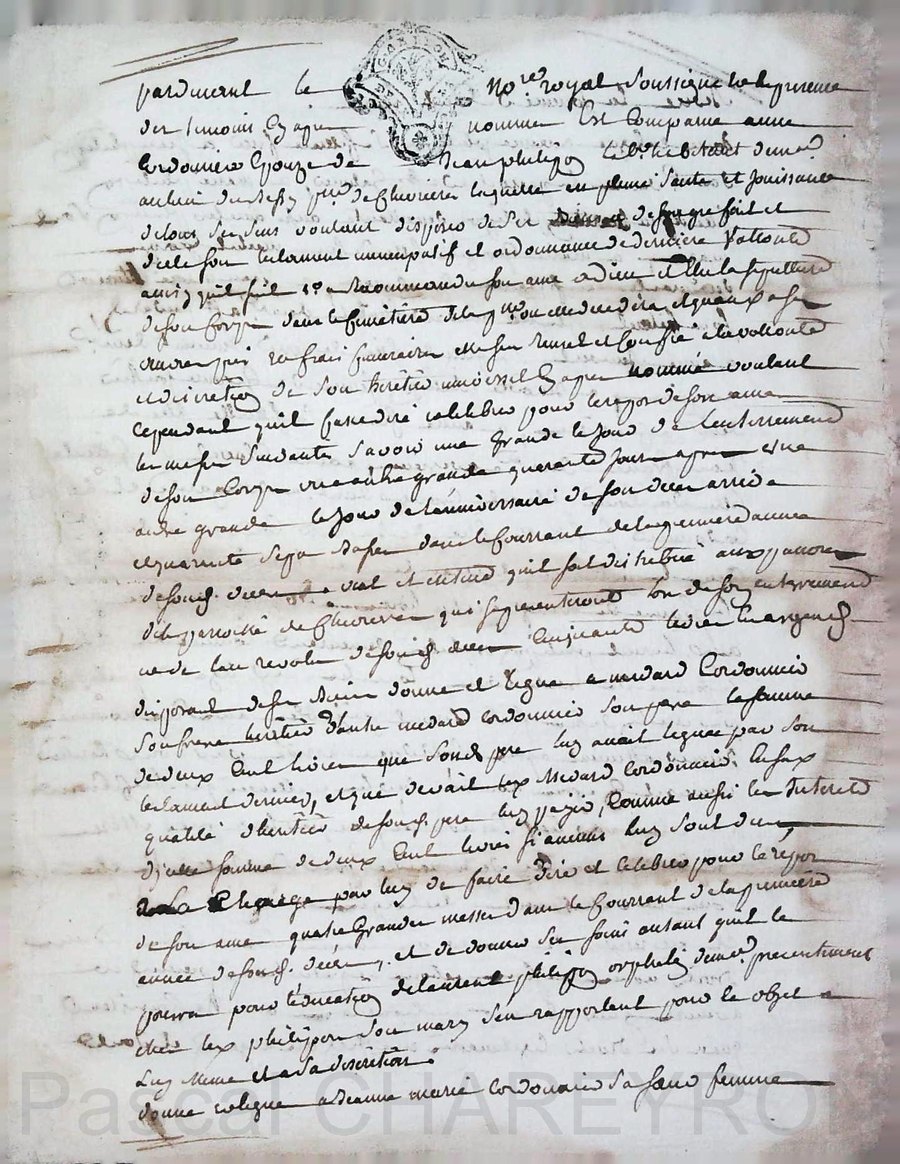 pardevant le no.re royal soussigné et en presence
des temoins apres nommes est comparue anne
Cordonnier Epouze de Jean philipon
au lieu du Bessy p.sse de Chevrieres laquelle en pleine santé et Jouissante
de tous ses sens voulant disposer de ses de son gre fait et
dicte son testament nuncupatif et ordonnance de derniere vollonté
ainsy quil suit 1° a Recommandé son ame a dieu Elle la sepulture
de son Corps dans le Cimetière de la p.sse ou elle decedera et quand a ses
œuvres pies et frais funeraires elle s'en remet et Confie a la vollonté
et discretion de son heritier universel apres nommé voulant
cependant quil fasse dire celebrer pour le repos de son ame
les messes suivantes savoir une grande le Jour de l'enterrement
de son Corps une autre grande quarante Jours apres et une
autre grande le Jour de l'anniversaire de son deces arrivé
et quarante basses dans le Courrant de la premiere année
de sond. deces veut et entend quil soit distribué aux pauvres
de la parroisse de Chevrieres qui se presenteront lors de son enterrement
ou de l'an revolu de sond. deces Cinquante livres en argent
disposant de ses Biens donne et legue a medard Cordonnier
son frere heritier d'autre medard cordonnier son pere la somme
de deux Cent livres que sond. pere luy avait leguée par son
testament dernier, et que devait lex Medard Cordonnier En sa
qualité d'heritier de sond. pere luy payer, Comme aussi les Interets
d'icelle somme de deux Cent livres si aucuns luy sont dus
a La Charge par luy de faire dire et celebrer pour le repos
de son ame quatre Grandes messes dans le Courrant de la premiere
année de sond. deces, et de donner ses soins autant quil le
pourra pour l'éducation de laurent philippon orphelin dem.t presentement
chez lex philipon son mary s'en rapportant pour cet objet a
Luy meme et a sa discretion.
donne et legue a Jeanne marie cordonnier sa sœur femme
Pascal CHAREYRON